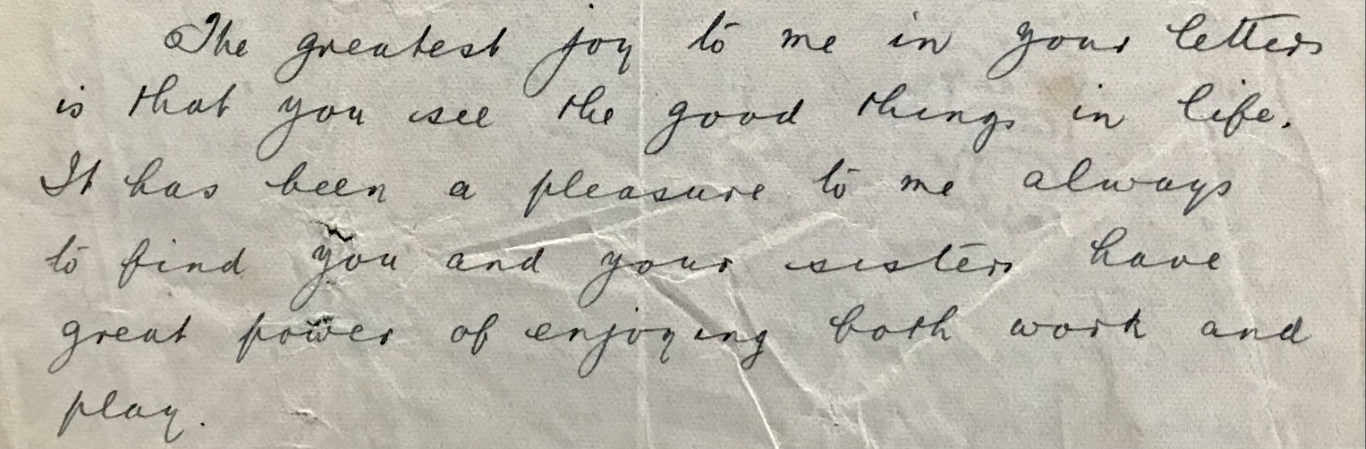 The greatest joy to me in your letters
is that you see the good things in life.
It has been a pleasure to me always
to find you and your sisters have
great power of enjoying both work and
play.